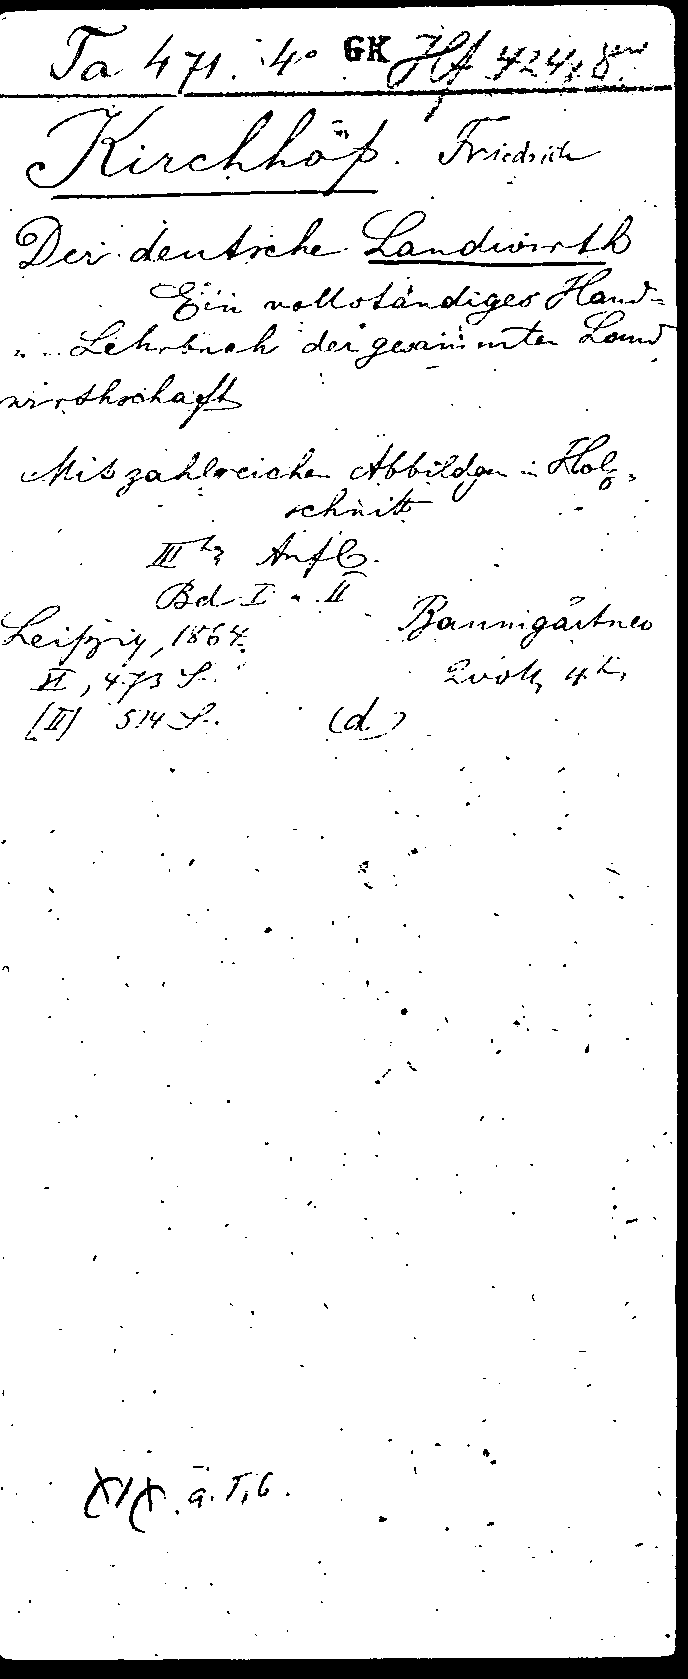 Ta 471. 4° GK Hf 424,8
Kirchhof. Friedrich
Der deutsche Landwirth
Ein vollständiges Hand-
u. Lehrbuch der gesammten Land
wirthschaft
Mit zahlreichen Abbildgn in Holz-
schnitt
III te Aufl.
Bd I u. II
Leipzig, 1864. Baumgärtner
VI, 473 S. 4 to
[II] 514 S. (d)
XIX. a. T, 6.